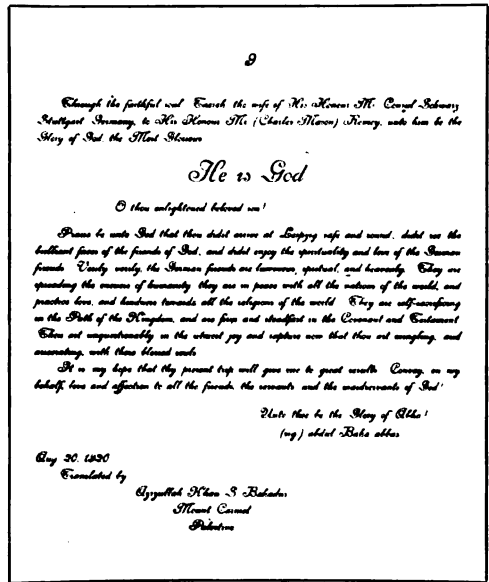 9
Through the faithful soul Farah the wife of His Honour Mr. Consul Schwarz
Stuttgart Germany, to His Honour Mr. (Charles Mason) Remey, unto him be the
Glory of God, the Most Glorious
He is God
O thou enlightened beloved son!
Praise be unto God that thou didst arrive at Leipzig safe and sound, didst see the
brilliant faces of the friends of God, and didst enjoy the spirituality and love of the German
friends Verily verily, the German friends are luminous, spiritual, and heavenly. They are
spreading the oneness of humanity they are in peace with all the nations of the world, and
practice love, and kindness towards all the religions of the world They are self-sacrificing
in the Path of the Kingdom, and are firm and steadfast in the Covenant and Testament
Thou art unquestionably in the utmost joy and rapture now that thou art mingling, and
associating, with those blessed souls
It is my hope that thy present trip will give rise to great results Convey, on my
behalf, love and affection to all the friends the servants and the maidservants of God!
Unto thee be the Glory of Abha!
(sig) abdul Baha abbas
Aug 20. 1920
Translated by
Azizullah Khan S. Bahadur
Mount Carmel
Palestine